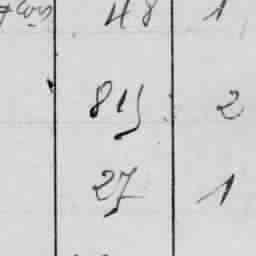 48 1
815 2
27 1